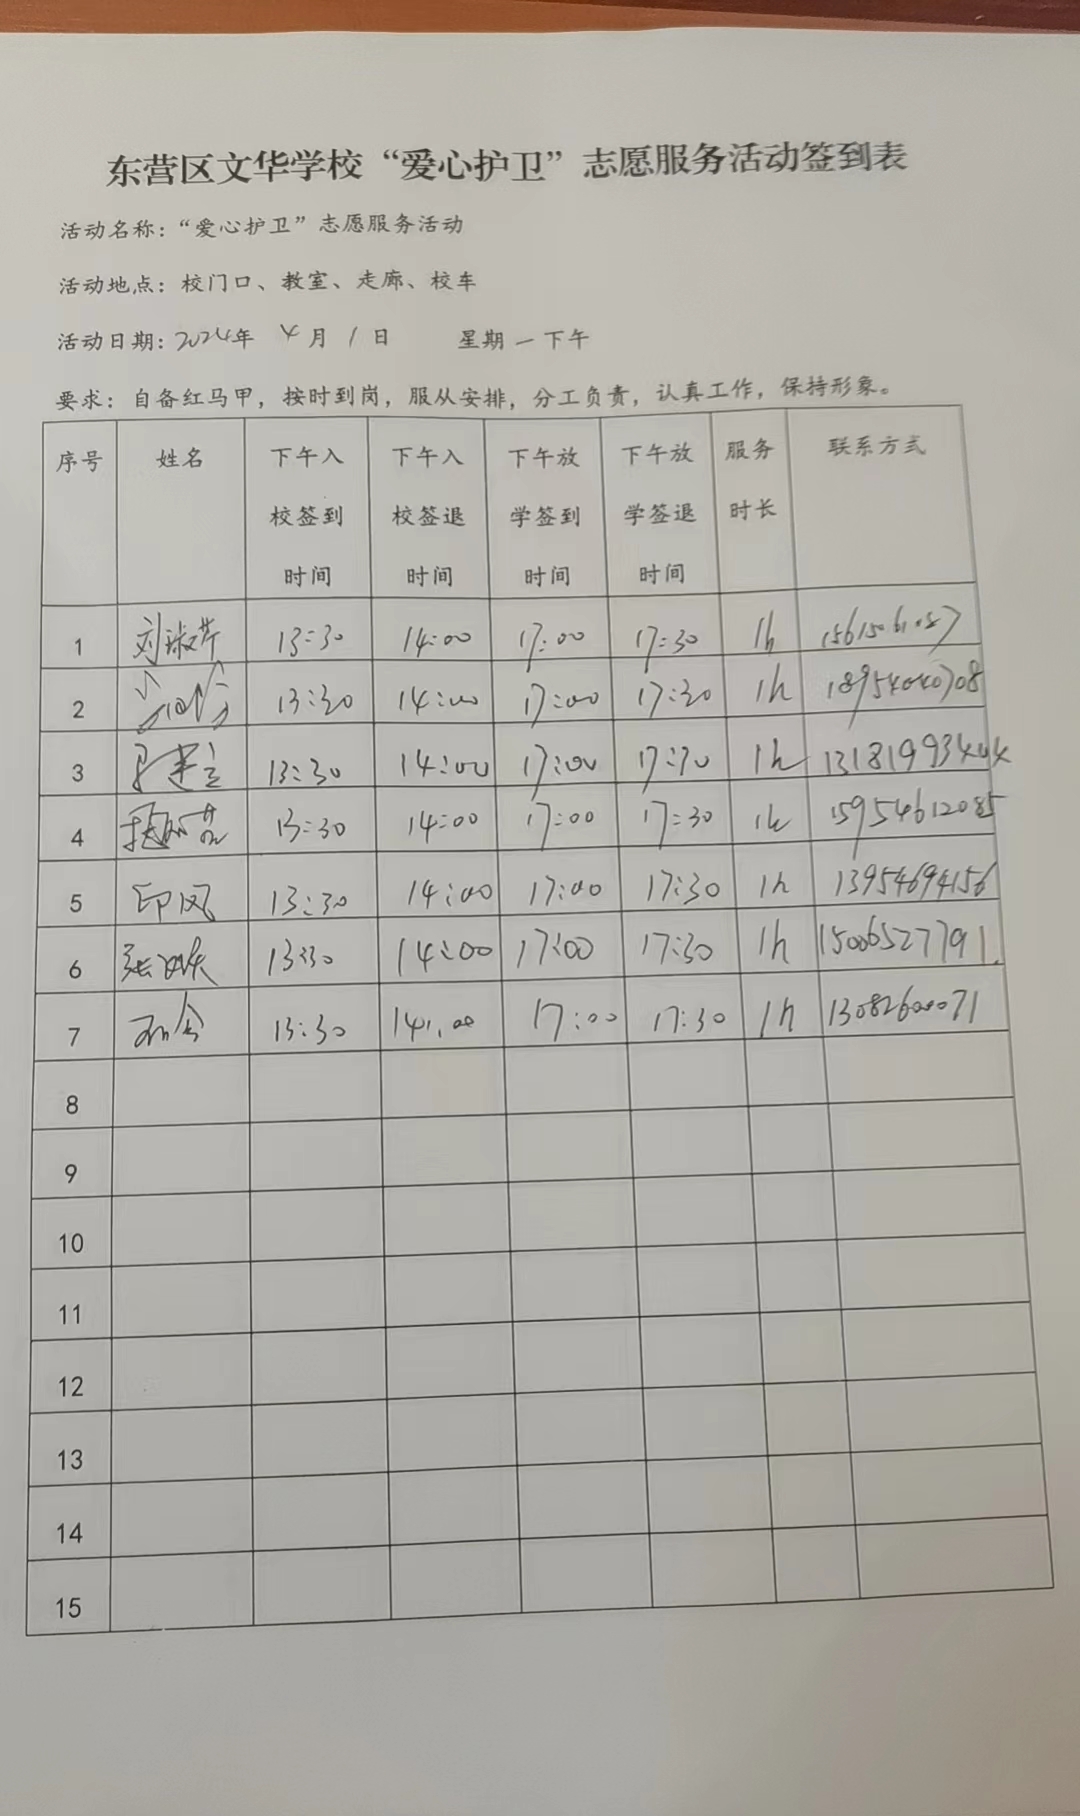 东营区文华学校“爱心护卫”志愿服务活动签到表
活动名称：“爱心护卫”志愿服务活动
活动地点：校门口、教室、走廊、校车
活动日期：2024年 4月 1日 星期一下午
要求：自备红马甲，按时到岗，服从安排，分工负责，认真工作，保持形象。
序号 姓名 下午入校签到时间 下午入校签退时间 下午放学签到时间 下午放学签退时间 服务时长 联系方式
1 刘淑芹 13:30 14:00 17:00 17:30 1h
2 13:30 14:00 17:00 17:30 1h 18954040708
3 13:30 14:00 17:00 17:30 1h
4 13:30 14:00 17:00 17:30 1h 15954612085
5 印凤 13:30 14:00 17:00 17:30 1h 13954694156
6 13:30 14:00 17:00 17:30 1h 15006527791.
7 13:30 14:00 17:00 17:30 1h 13082600071
8
9
10
11
12
13
14
15